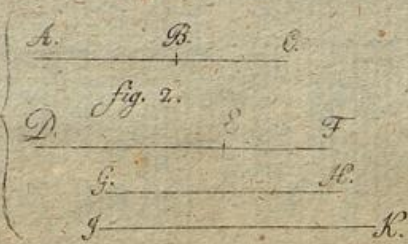 A. B. C.
fig. 2.
D. E F
G. H.
J K.